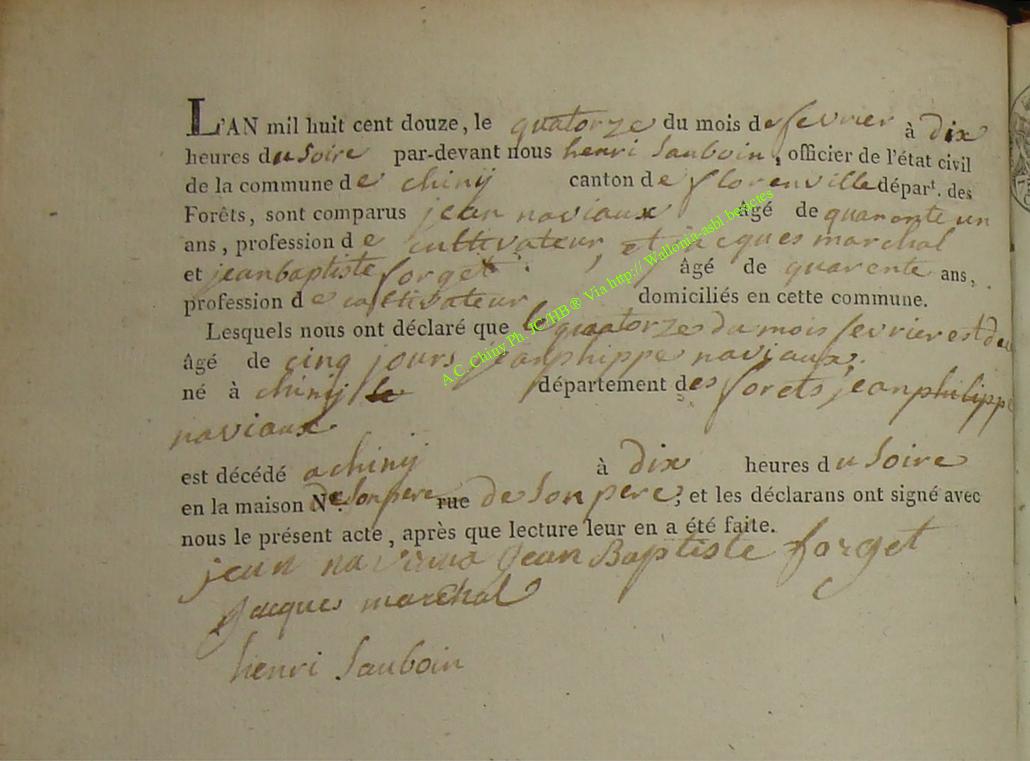 L'AN mil huit cent douze, le quatorze du mois de fevrier à dix
heures du soire par-devant nous henri Sauboin, officier de l'état civil
de la commune de chinij canton de florenville départ. des
Forêts, sont comparus jean naviaux âgé de quaronte un
ans, profession de cultivateur, et jacques marchal
et jeanbaptiste forget âgé de quarente ans,
profession de cultivateur domiciliés en cette commune.
Lesquels nous ont déclaré que le quatorze du mois fevrier est
âgé de cinq jours jeanphippe naviaux,
né à chinij département des forets jeanphilippe
naviaux
est décédé a chinij à dix heures du soire
en la maison N.º de son pere rue de son pere, et les déclarans ont signé avec
nous le présent acte, après que lecture leur en a été faite.
jean naviaux Jean Baptiste forget
Jacques marchal
henri Sauboin
A.C. Chiny Ph. JC/HB® Via http://Wallonia-asbl.be/acies